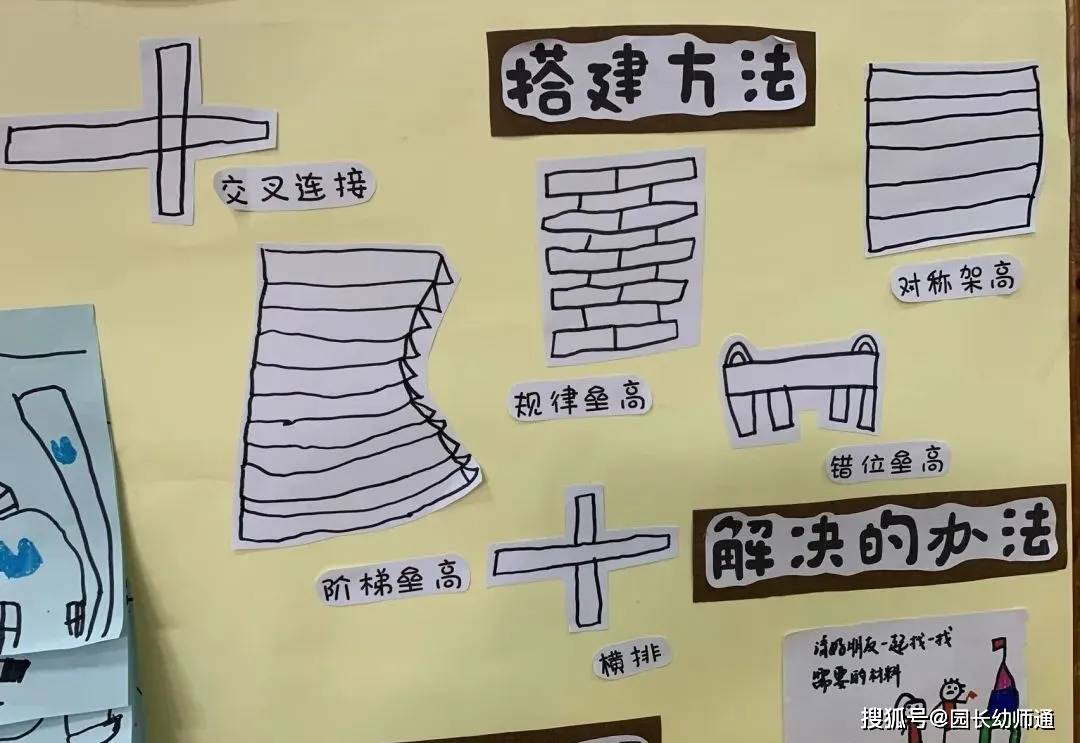 搭建方法
交叉连接
对称架高
规律垒高
错位垒高
阶梯垒高
横排
解决的办法
请好朋友一起找一找
需要的材料
搜狐号@园长幼师通